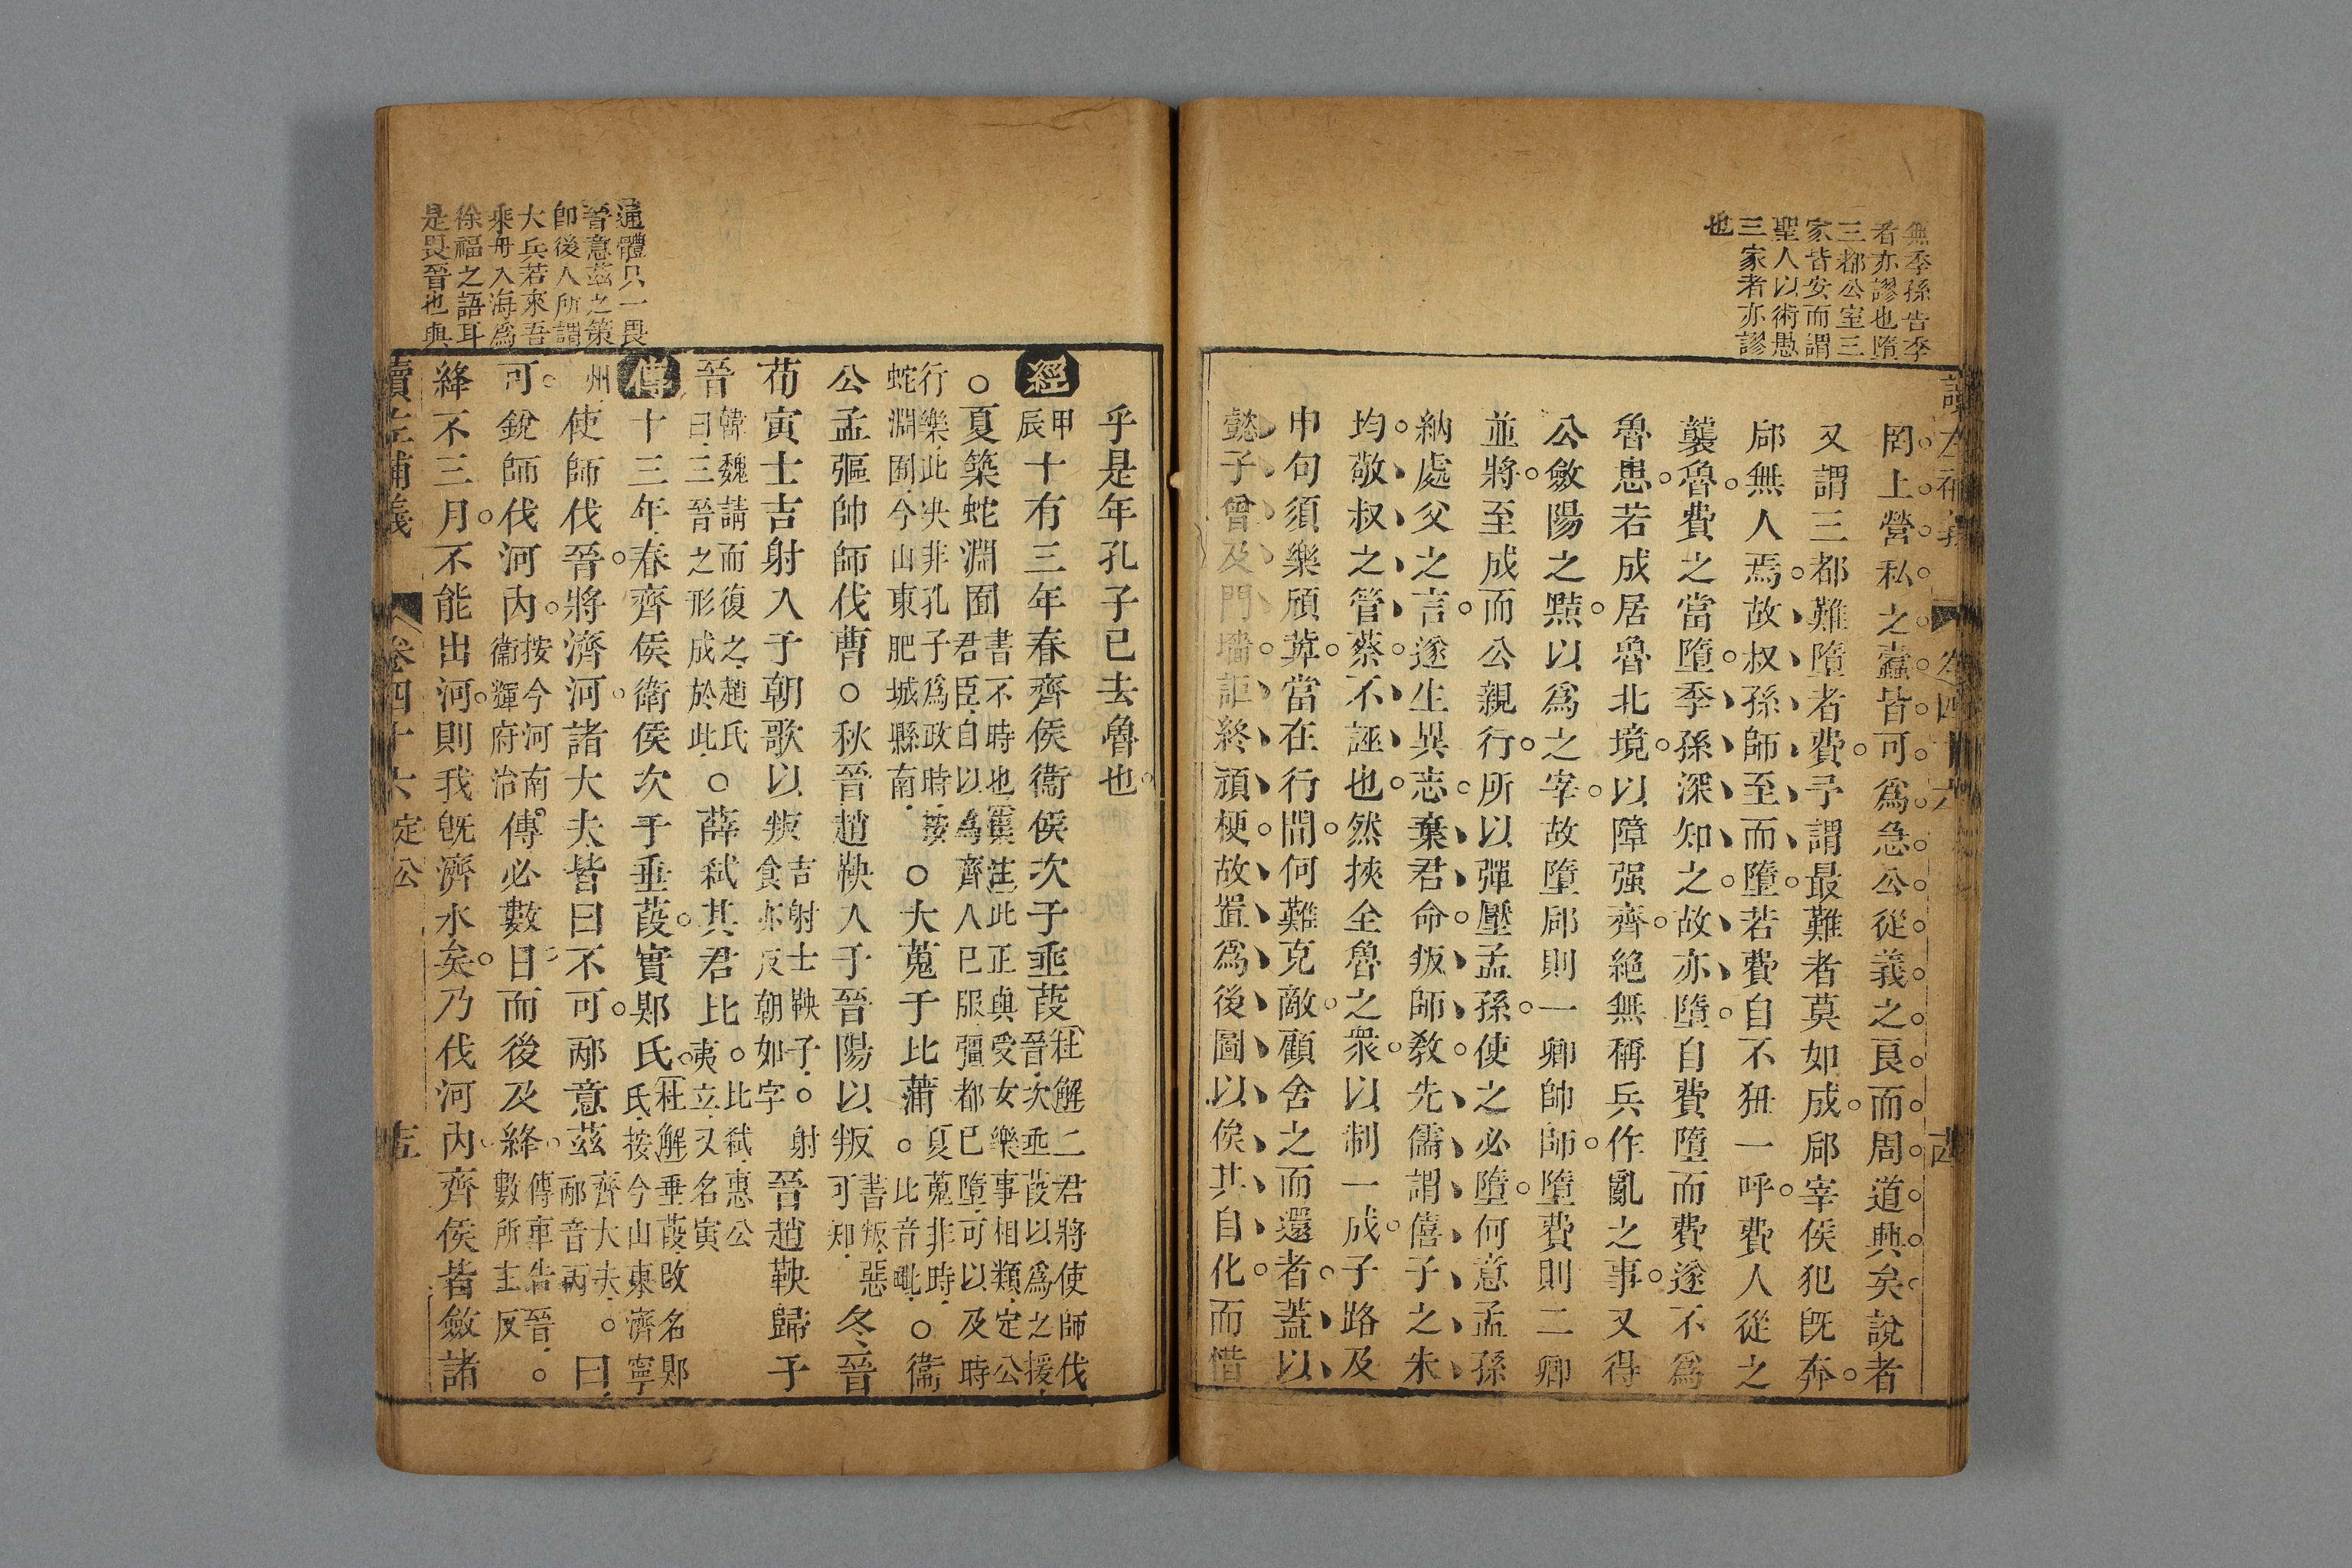 無季孫告季
者亦謬也墮
三都公室三
家皆安而謂
聖人以術愚
三家者亦謬
也
罔上營私之蠹皆可爲急公從義之良而周道興矣說者
又謂三都難墮者費予謂最難者莫如成郈宰侯犯旣奔
郈無人焉故叔孫師至而墮若費自不狃一呼費人從之
襲魯費之當墮季孫深知之故亦墮自費墮而費遂不爲
魯患若成居魯北境以障强齊絶無稱兵作亂之事又得
公斂陽之黠以爲之宰故墮郈則一卿帥師墮費則二卿
並將至成而公親行所以彈壓孟孫使之必墮何意孟孫
納處父之言遂生異志棄君命叛師教先儒謂僖子之朱
均敬叔之管蔡不誣也然挾全魯之衆以制一成子路及
申句須樂頎輩當在行間何難克敵顧舍之而還者蓋以
懿子曾及門墻詎終頑梗故置爲後圖以俟其自化而惜
讀左補義 卷四十六 古
通體只一畏
晉意茲之策
卽後人所謂
大兵若來吾
乘舟入海爲
徐福之語耳
是畏晉也與
乎是年孔子已去魯也
經甲辰十有三年春齊侯衞侯次于垂葭杜解二君將使師伐晉次垂葭以爲之援
○夏築蛇淵囿書不時也彙注此正與受女樂事相類定公君臣自以爲齊人已服彊都已墮可以及時
行樂此決非孔子爲政時按蛇淵囿今山東肥城縣南○大蒐于比蒲夏蒐非時比音毗○衞
公孟彄帥師伐曹○秋晉趙鞅入于晉陽以叛書叛惡可知冬晉
荀寅士吉射入于朝歌以叛吉射士鞅子○射食亦反朝如字晉趙鞅歸于
晉韓魏請而復之趙氏曰三晉之形成於此○薛弑其君比比弑惠公夷立又名寅
傳十三年春齊侯衞侯次于垂葭實郹氏杜解垂葭改名郹氏按今山東濟寧
州使師伐晉將濟河諸大夫皆曰不可邴意茲齊大夫○邴音丙曰
可銳師伐河內按今河南衞輝府治傳必數日而後及絳傳車告晉○數所主反
絳不三月不能出河則我旣濟水矣乃伐河內齊侯皆斂諸
讀左補義 卷四十六定公 吉